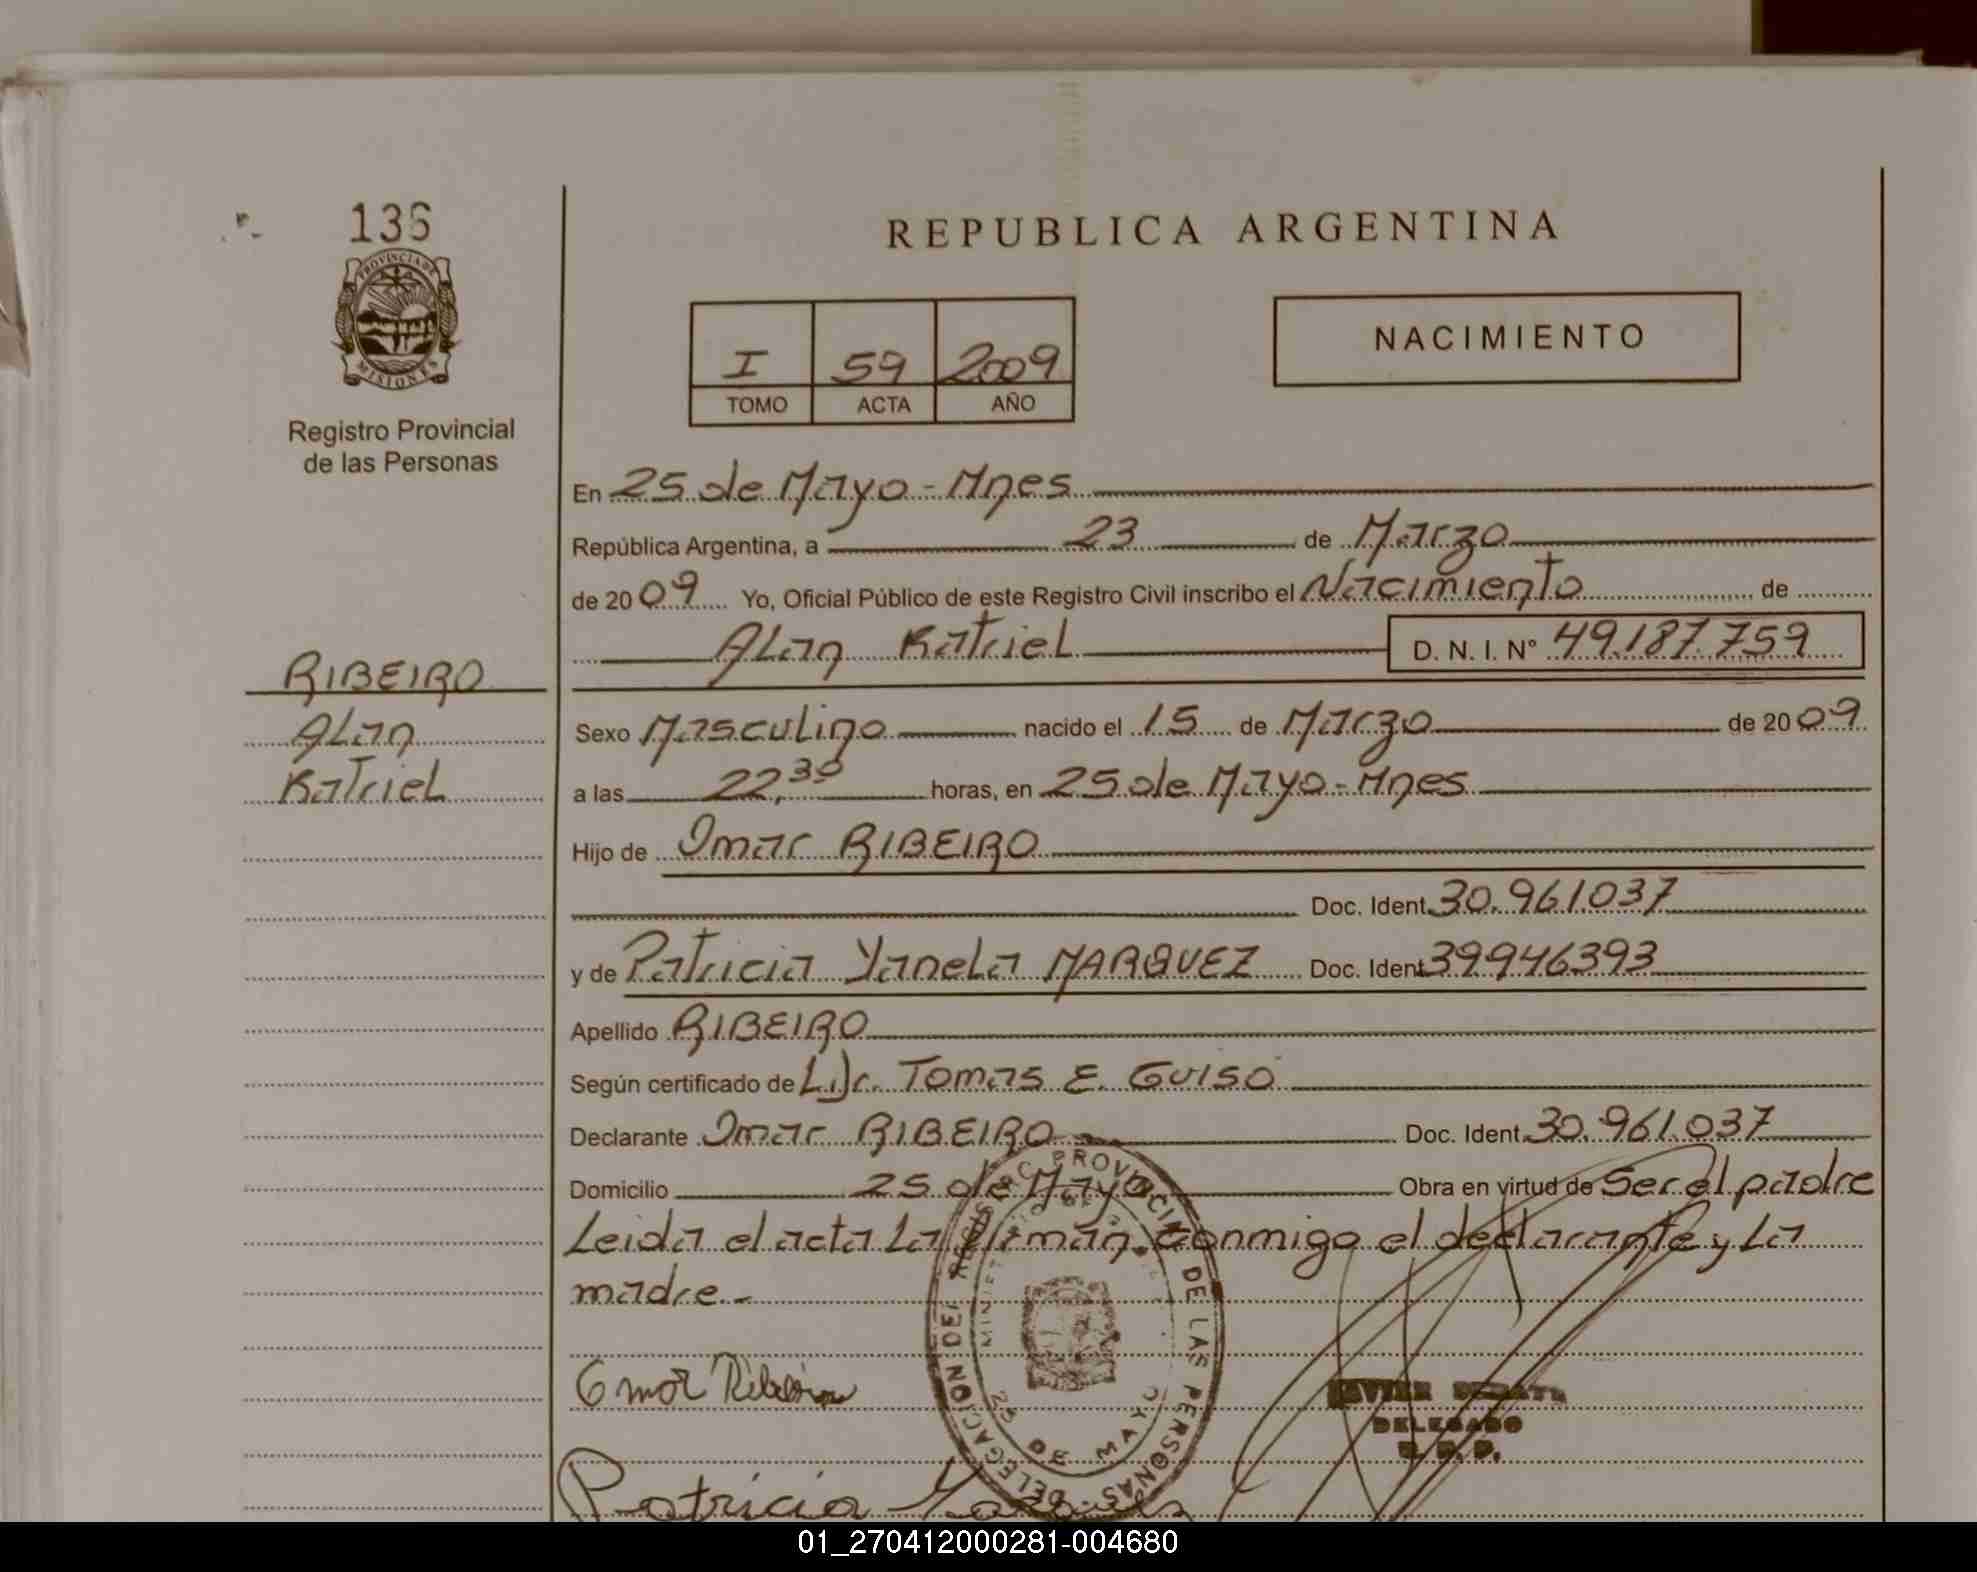 136
PROVINCIA DE
MISIONES
Registro Provincial
de las Personas
REPUBLICA ARGENTINA
I 59 2009
TOMO ACTA AÑO
NACIMIENTO
En 25 de Mayo - Mnes
República Argentina, a 23 de Marzo
de 2009 Yo, Oficial Público de este Registro Civil inscribo el Nacimiento de
Alan Katriel D. N. I. N° 49.187.759
RIBEIRO
Alan
Katriel
Sexo Masculino nacido el 15 de Marzo de 2009
a las 22,30 horas, en 25 de Mayo - Mnes
Hijo de Omar RIBEIRO
Doc. Ident. 30.961.037
y de Patricia Yanela MARQUEZ Doc. Ident 39946393
Apellido RIBEIRO
Según certificado de Tomas E. Guiso
Declarante Omar RIBEIRO Doc. Ident. 30.961.037
Domicilio 25 de Mayo Obra en virtud de Ser el padre
Leida el acta La firman conmigo el declarante y La
madre.-
Omar Ribeiro
DELEGACION DEL REGISTRO PROVINCIAL DE LAS PERSONAS
25 DE MAYO
DELEGADO
Patricia
01_270412000281-004680